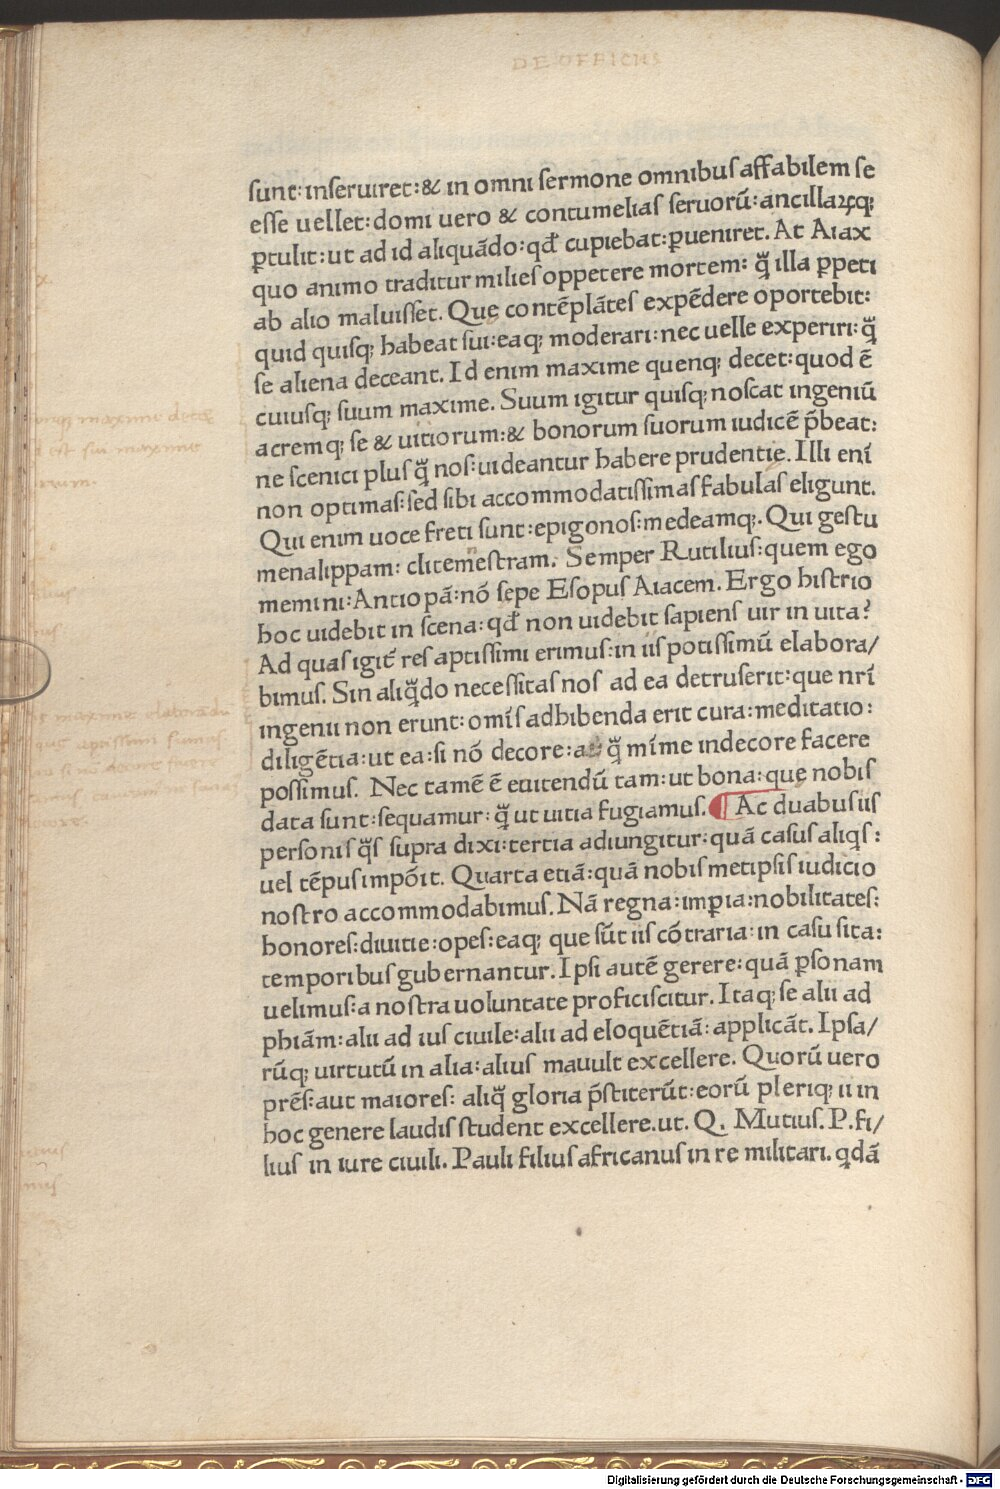 DE OFFICIIS
sunt: inseruiret: & in omni sermone omnibus affabilem se
esse uellet: domi uero & contumelias seruorū: ancillaꝝq;
ꝑtulit: ut ad id aliquādo: qđ cupiebat: ꝑueniret. At Aiax
quo animo traditur milies oppetere mortem: q̃ illa ꝑpeti
ab alio maluisset. Que contēplātes expēdere oportebit:
quid quisq; habeat sui: eaq; moderari: nec uelle experiri: q̃
se aliena deceant. Id enim maxime quenq; decet: quod ē
cuiusq; suum maxime. Suum igitur quisq; noscat ingeniū
acremq; se & uitiorum: & bonorum suorum iudicē p̄beat:
ne scenici plus q̃ nos: uideantur habere prudentie. Illi eni̅
non optimas: sed sibi accommodatissimas fabulas eligunt.
Qui enim uoce freti sunt: epigonos: medeamq;. Qui gestu
menalippam: clitemestram. Semper Rutilius: quem ego
memini: Antiopā: nō sepe Esopus Aiacem. Ergo histrio
hoc uidebit in scena: qđ non uidebit sapiens uir in uita?
Ad quas igit̃ res aptissimi erimus: in iis potissimū elabora/
bimus. Sin aliq̃do necessitas nos ad ea detruserit: que nr̄i
ingenii non erunt: omīs adhibenda erit cura: meditatio:
diligētia: ut ea: si nō decore: at q̃ mīme indecore facere
possimus. Nec tamē ē euitendū tam: ut bona: que nobis
data sunt: sequamur: q̃ ut uitia fugiamus. ¶ Ac duabus iis
personis q̃s supra dixi: tertia adiungitur: quā casus aliqs:
uel tēpus impōit. Quarta etiā: quā nobismetipsis iudicio
nostro accommodabimus. Nā regna: imꝑia: nobilitates:
honores: diuitie: opes: eaq; que sūt iis cōtraria: in casu sita:
temporibus gubernantur. Ipsi autē gerere: quā ꝑsonam
uelimus: a nostra uoluntate proficiscitur. Itaq; se alii ad
phiām: alii ad ius ciuile: alii ad eloquētiā: applicāt. Ipsa/
rūq; uirtutū in alia: alius mauult excellere. Quorū uero
prēs: aut maiores: aliq̃ gloria p̄stiterūt: eorū pleriq; ii in
hoc genere laudis student excellere. ut. Q. Mutius. P. fi/
lius in iure ciuili. Pauli filius africanus in re militari. qdā
maxime decet
est sui maxime
maxime elaborādū
aptissimi sumus
Digitalisierung gefördert durch die Deutsche Forschungsgemeinschaft - DFG